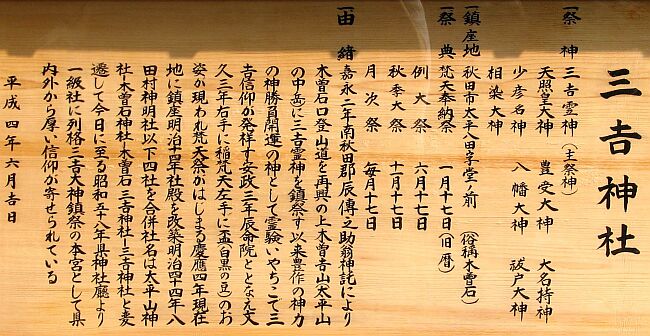 三吉神社
一祭神 三吉霊神(主祭神)
天照皇大神 豊受大神 大名持神
少彦名神 八幡大神 祓戸大神
相染大神
一鎮座地 秋田市太平八田字堂ノ前(俗稱木曽石)
一祭典 梵天奉納祭 一月十七日(旧暦)
例大祭 六月十七日
秋季大祭 十一月十七日
月次祭 毎月十七日
一由緒
嘉永二年南秋田郡辰傳之助翁神託により
木曽石口登山道を再興の上木曽吉山太平山
の中岳に三吉霊神を鎮祭す以来豊作の神力
の神勝負開運の神として霊験いやちこで三
吉信仰が発祥す安政三年辰命院ととなえ文
久三年右手に稲梵天左手に盃(白黒の皿)のお
姿が現われ梵天祭がはじまる慶應四年現在
地に鎮座明治十四年社殿を改築明治四十四年八
田村神明社以下四社を合併社名は太平山神
社-木曽石神社-木曽石三吉神社-三吉神社と変
遷して今日に至る昭和五十八年県神社廳より
一級社に列格三吉大神鎮祭の本宮として県
内外から厚い信仰が寄せられている
平成四年六月吉日